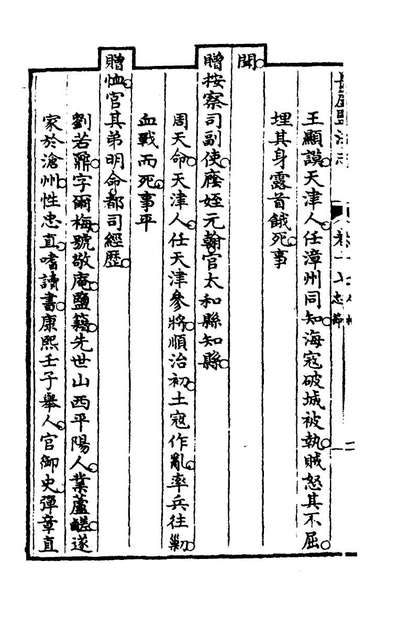 王顯謨天津人任漳州同知海寇破城被執賊怒其不屈
埋其身露首餓死事
聞
贈按察司副使廕姪元翰官太和縣知縣
周天命天津人任天津參將順治初土寇作亂率兵往勦
血戰而死事平
贈恤官其弟明命都司經歷
劉若鼐字爾梅號敬庵鹽籍先世山西平陽人業蘆鹺遂
家於滄州性忠直嗜讀書康熙壬子舉人官御史彈章直